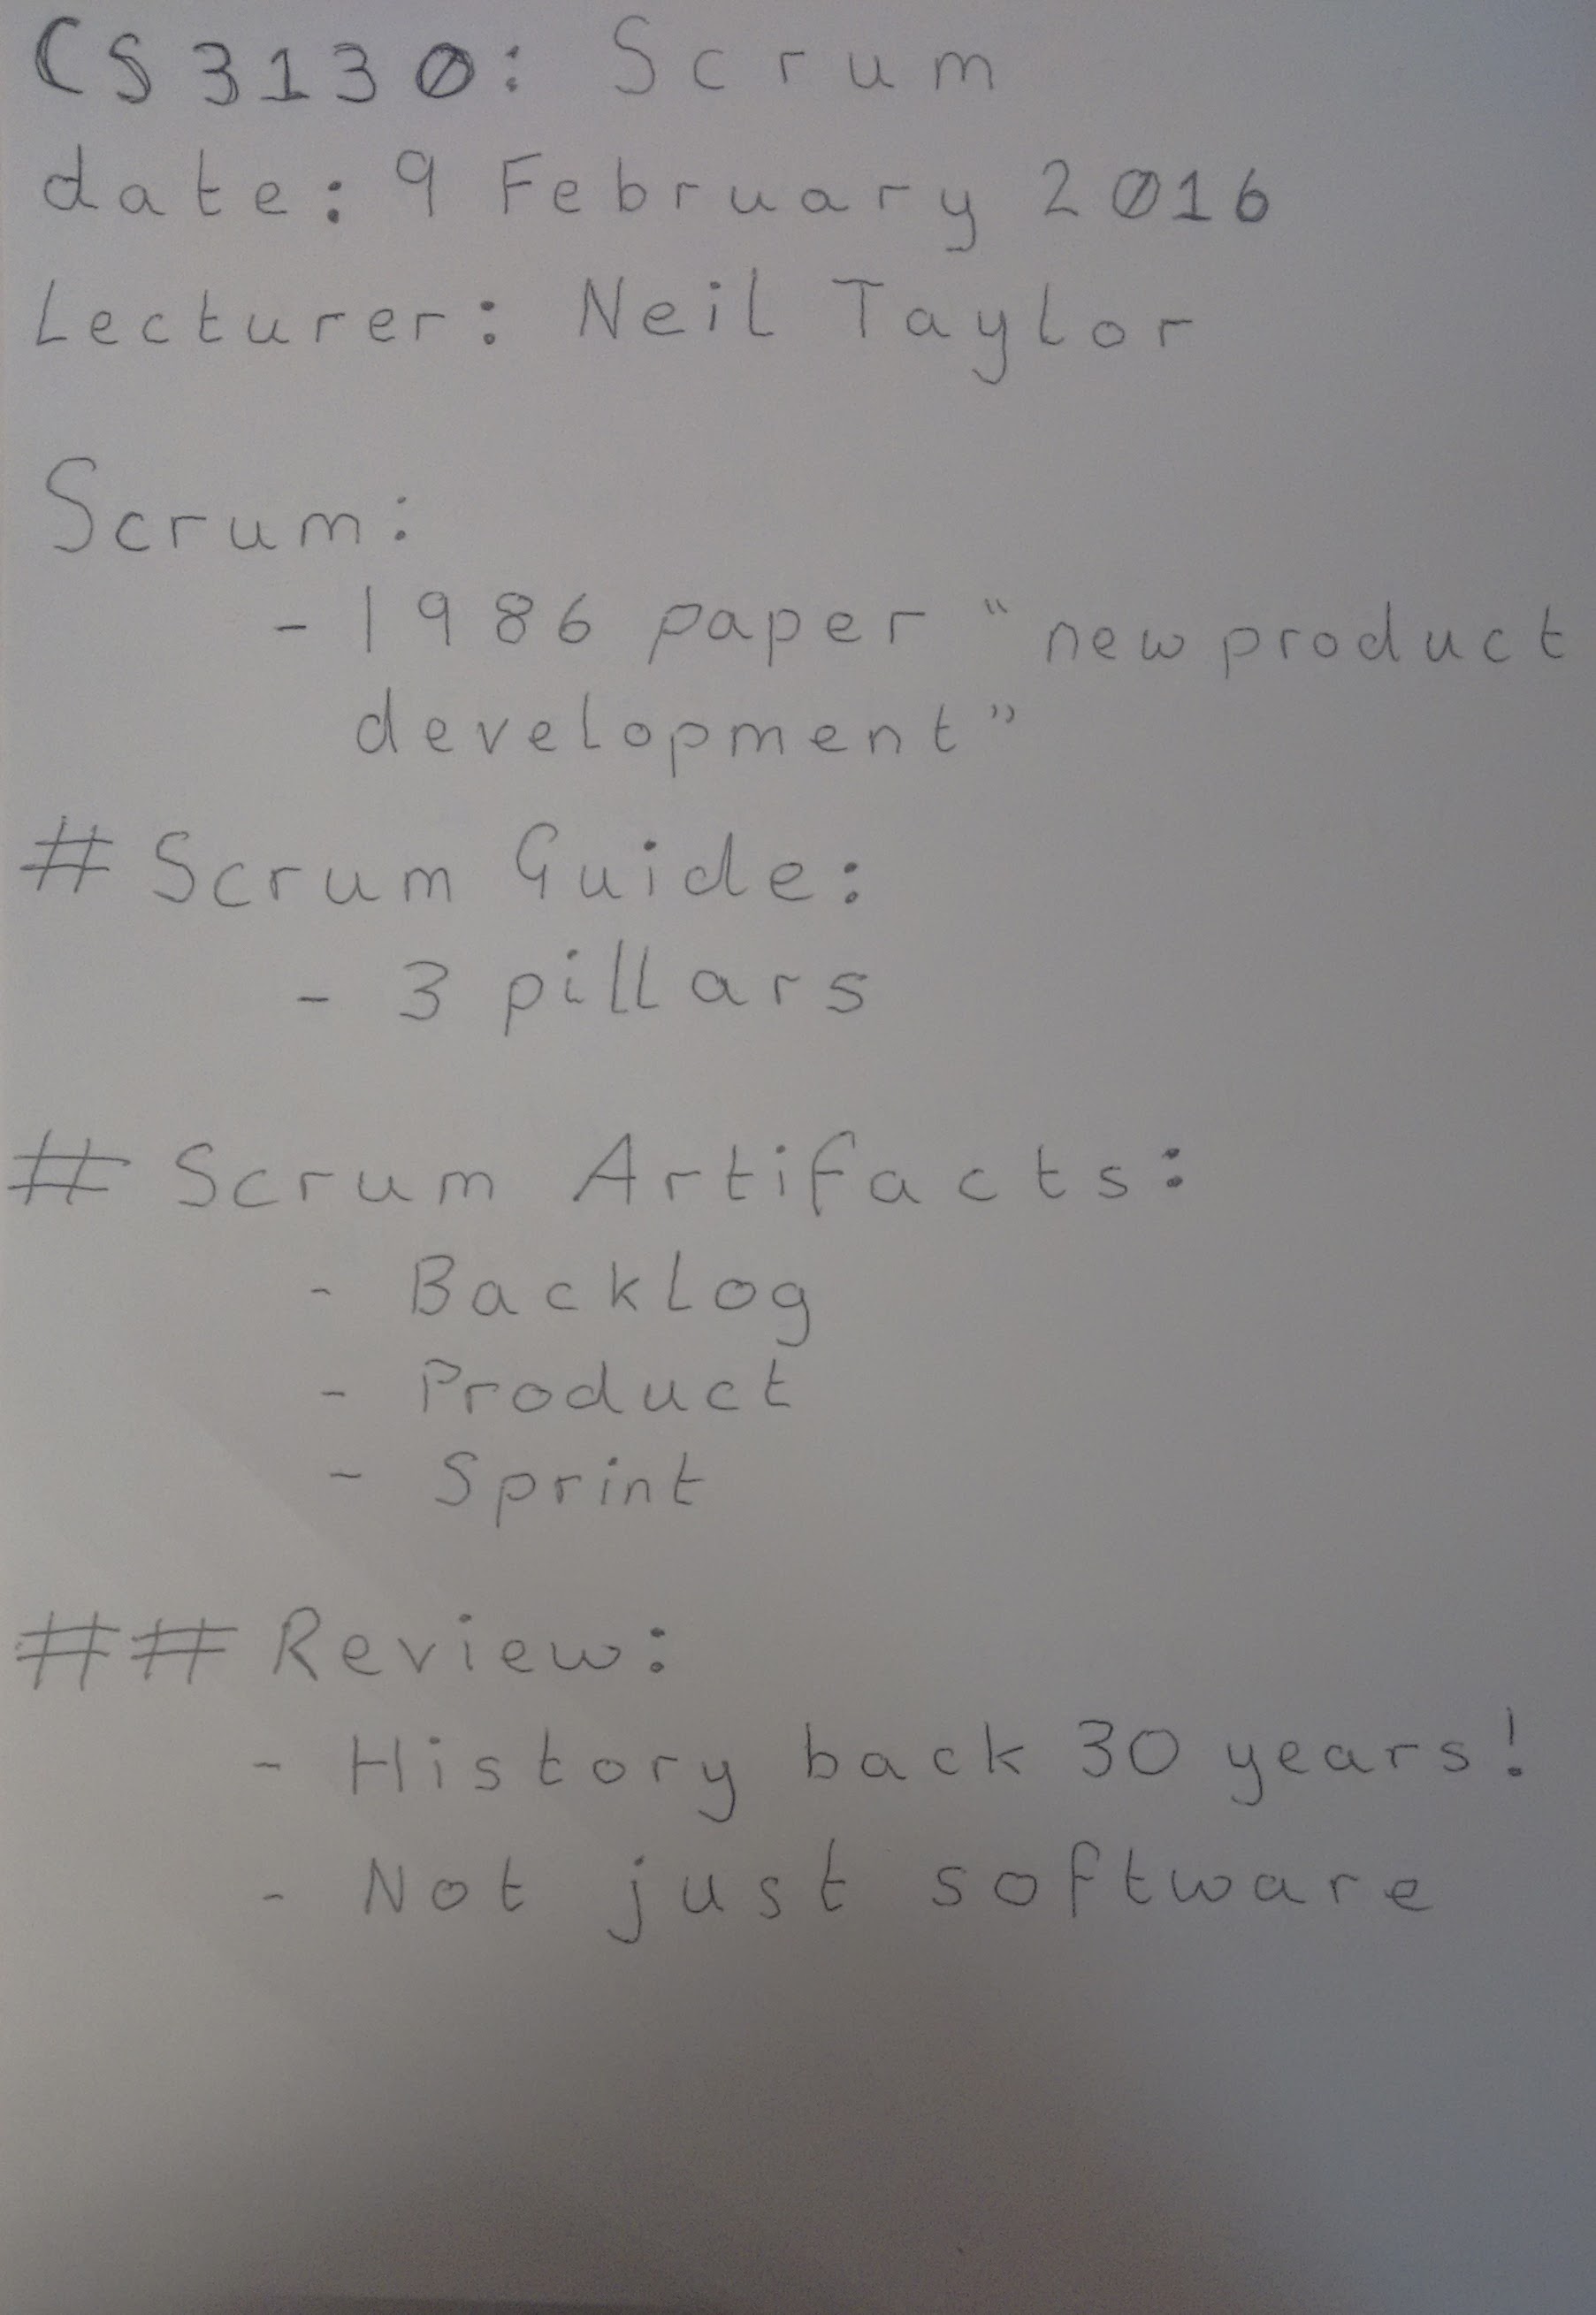 CS3130: Scrum
date: 9 February 2016
Lecturer: Neil Taylor
Scrum:
- 1986 paper "new product
development"
# Scrum Guide:
- 3 pillars
# Scrum Artifacts:
- Backlog
- Product
- Sprint
## Review:
- History back 30 years!
- Not just software